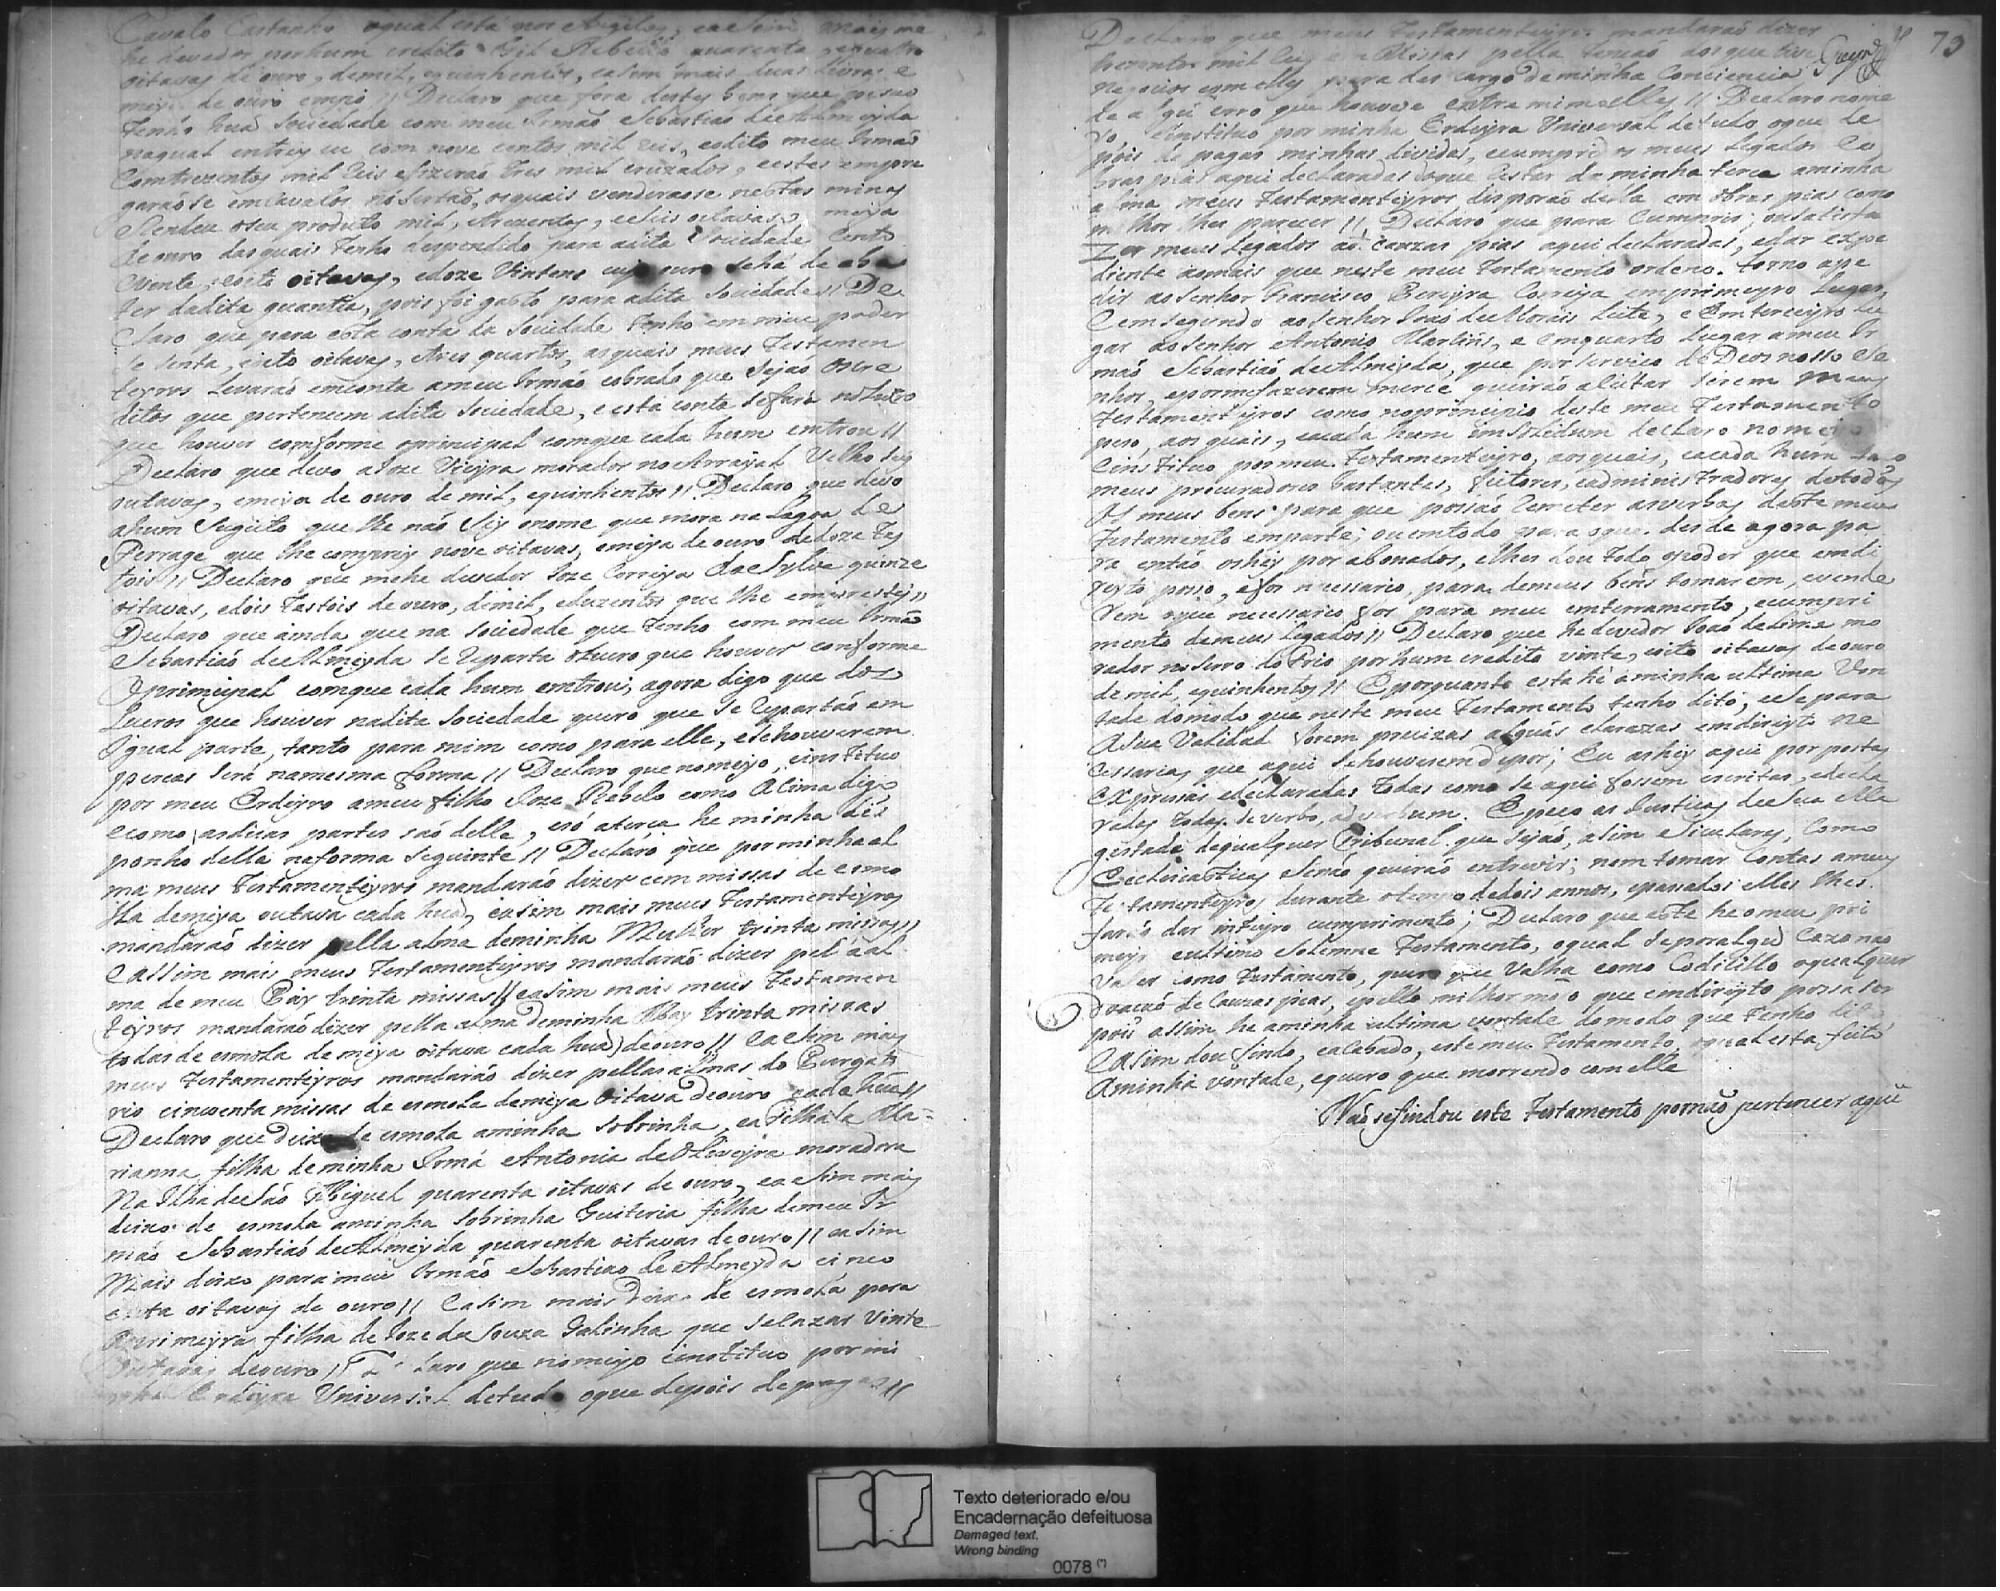 Cavalo Castanho oqual está nos , easim mais me
he devedor porhum credito Gil Rebello quarenta equatro
oitavas de ouro, demil, equinhentos, easim mais duas livras e
meya de ouro empó // Declaro que fora destes bens que posuo
tenho hua Sociedade com meu Irmaõ Sebastiaõ de Almeyda
naqual entrey eu com nove centos mil reis, eodito meu Irmaõ
Comtrezentos mil Reis efizeraõ tres mil cruzados, eestes empre
garaõse emCavalos noSertaõ, osquais venderaose nestas minas
eRendeu oseu produto mil, etrezentas, eseis oitavas, meya
de ouro dasquais tenho despendido para adita Sociedade Cento
evinte, eoito oitavas, edoze Vintens cujo ouro sehá de aba
ter dadita quantia, pois foi gasto para adita Sociedade // De
Claro que para esta conta da Sociedade tenho em meu poder
Se senta, eoito oitavas, etres quartos, asquais meus Testamen
teyros Levaraõ emConta ameu Irmaõ cobrado que Sejaõ Oscre
ditos que pertencem adita Sociedade, e esta conta sefará noLucro
que houver comforme oprincipal comque cada hum emtrou //
Declaro que devo aJoze Vieyra morador noArrayal Velho Seis
outavas, emeya de ouro de mil, equinhentos // Declaro que devo
ahum Sugeito que lhe naõ Sey onome que mora na Lagoa de
Ferrage que lhe comprey nove oitavas, emeya de ouro dedoze tes
tois // Declaro que mehe devedor Joze Correya da Sylva quinze
oitavas, edois tostois de ouro, demil, eduzentos que lhe emprestey //
Declaro que ainda que na Sociedade que tenho com meu Irmaõ
Sebastiaõ deAlmeyda Se Reparta oLucro que houver comforme
Oprimcipal comque cada hum emtrou; agora digo que dos
Lucros que houver nadita Sociedade quero que Se Repartaõ em
Igual parte, tanto para mim como para elle, eSehouverem
percas Será namesma forma // Declaro que nomeyo, einstituo
por meu Erdeyro ameu filho Joze Rabelo como aSima digo
ecomo asduas partes saõ delle, esó aterca he minha dis
ponho della naforma Seguinte // Declaro que por minha al
ma meus Testamenteyros mandaraõ dizer cem missas de esmo
lla demeya outava cada huã, easim mais meus Testamenteyros
mandaraõ dizer pella alma deminha Mulher trinta missas //
Eassim mais meus Testamenteyros mandaraõ dizer pel a al
ma de meu Pay trinta missas // easim mais meus Testamen
teyros mandaraõ dizer pella alma deminha May trinta missas
todas de esmola de meya oitava cada huã deouro // Easim mais
meus Testamenteyros mandaraõ dizer pellas almas do Purgato
rio cincoenta missas de esmola demeya Oitava deouro cada huã //
Declaro que deixo de esmola aminha Sobrinha, ea filhada Ma-
rianna filha deminha Irmã Antonia de Oliveyra moradora
Na Ilha deSaõ Miguel quarenta oitavas de ouro, easim mais
deixo de esmola aminha Sobrinha Guiteria filha demeu Ir
maõ Sebastiaõ deAlmeyda quarenta oitavas deouro // easim
Mais deixo para meu Irmaõ Sebastiaõ de Almeyda cinco
enta oitavas de ouro // Easim mais deixo de esmola para
aprimeyra filha de Joze da Souza Galinha que seCazar Vinte
Outavas deouro // Declaro que nomeyo einstituo por mi
nha Erdeyra Universal detudo oque depois depagas //
Declaro que meus Testamenteyros mandaraõ dizer
mil Reis em Missas pella tencaõ dos que tive
negocios com elles para des cargo de minha Conciencia
de algũ erro que houvese entre mim eelles // Declaro nome
yo, einstituo por minha Erdeyra Universal detudo oque de
pois de pagas minhas dividas, ecumpridos meus Legados Eo
bras pias aqui declaradas oque Restar de minha terca aminha
alma meus Testamenteyros disporaõ della em obras pias como
milhor lhes parecer // Declaro que para Cumprir, ou Satisfa
Zer meus Legados aõ Cauzas pias aqui declaradas, edar expe
diente aomais que neste meu Testamento ordeno. torno ape
dir aoSenhor Francisco Pereyra Correya emprimeyro Lugar,
Eemsegundo aoSenhor Joaõ deMorais Leite, e Emterceyro Lu
gar aoSenhor Antonio Martins, e emquarto Lugar ameu Ir
maõ Sebastiaõ deAlmeyda, que por Servico deDeos nosso Se
nhor, epormefazerem merce queiraõ aceitar Serem meus
Testamenteyros como noprincipio deste meu Testamento
peso, aos quais, eacada hum imSolidum declaro nomeyo
Einstituo por meu Testamenteyro, aosquais, eacada hum faço
meus procuradores bastantes, feitores, eadministradores detodos
Os meus bens para que possaõ Remeter asverbas deste meu
Testamento emparte; ou emtodo para oque desde agora pa
ra entaõ oshey por abonados, elhes dou todo opoder que emdi
reyto posso, efor necessario, para de meus bens tomarem, evende
rem oque necessario for para meu emterramento, ecumpri
mento demeus Legados // Declaro que he devedor Joaõ de Lima mo
rador noSerro do Frio porhum credito vinte, eoito oitavas deouro
de mil, equinhentos // Eporquanto esta he aminha ultima Von
tade domodo que neste meu Testamento tenho dito, eSepara
aSua Validad forem precizas alguãs clauzas emdireyto ne
Cessarias que aqui Sehouvesem depor; Eu ashey aqui por postas
Expressas edeclaradas todas como Se aqui fossem escritas, edecla
radas todas de verbo, adverbum. Epeco as Justicas deSua Ma
gestade dequalquer Tribunal que Sejaõ, asim eSeculares, Como
Eccleziasticas eSenaõ queiraõ entrevir; nem tomar Contas ameus
Testamenteyros durante otempo dedois annos, epasados elles lhes
faraõ dar inteyro cumprimento; Declaro que este he omeu pri
meyro eultimo Solemne Testamento, oqual Seporalgũ Cazo naõ
Valer como Testamento, quero que Valha como Codicillo oqualquer
Doacaõ de Cauzas pias, epello milhor modo que emdireyto possa Ser
pois assim he aminha ultima vontade domodo que tenho dito
Easim dou findo, eacabado, este meu Testamento, oqual esta feito
Aminha vontade, equero que morrendo com elle
Naõ sefindou este Testamento pornaõ pertencer aqui
Texto deteriorado e/ou
Encadernação defeituosa
Damaged text.
Wrong binding
0078 (*)